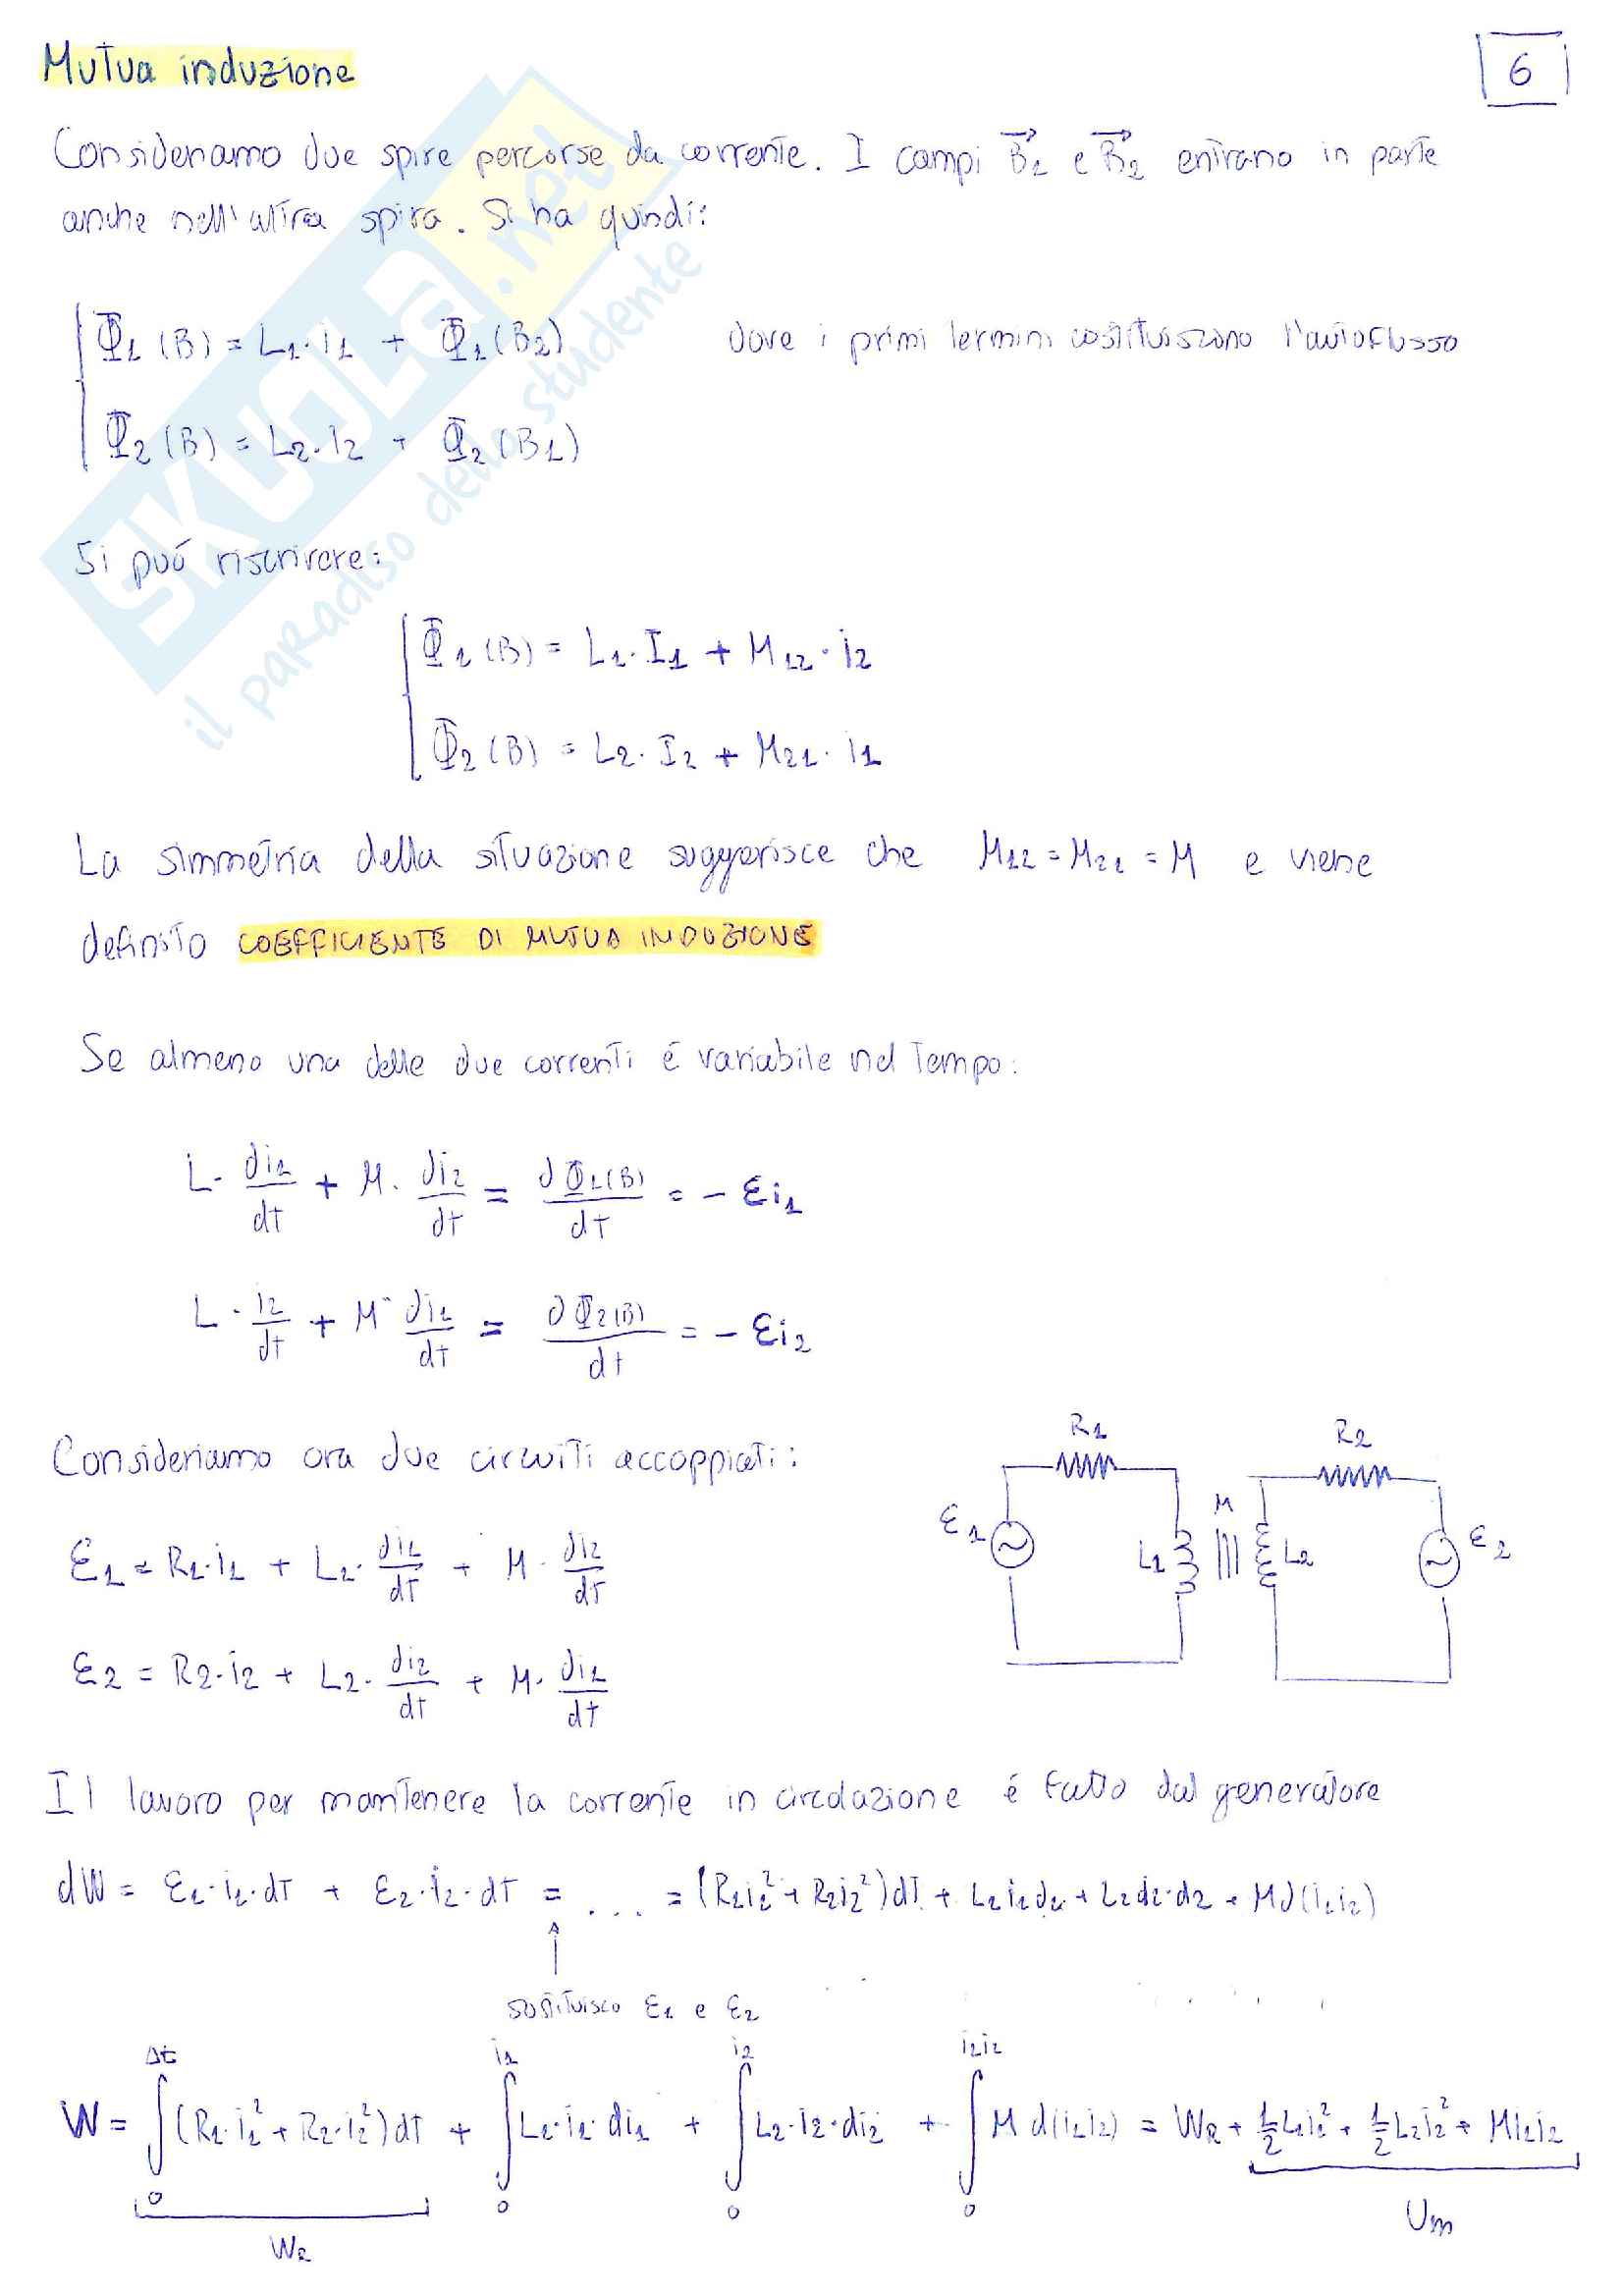 Mutua induzione
6
Consideriamo due spire percorse da corrente. I campi B⃗1 e B⃗2 entrano in parte
anche nell'altra spira. Si ha quindi:
Φ1(B) = L1·I1 + Φ1(B2) dove i primi termini costituiscono l'autoflusso
Φ2(B) = L2·I2 + Φ2(B1)
Si può riscrivere:
Φ1(B) = L1·I1 + M12·i2
Φ2(B) = L2·I2 + M21·i1
La simmetria della situazione suggerisce che M12 = M21 = M e viene
definito COEFFICIENTE DI MUTUA INDUZIONE
Se almeno una delle due correnti é variabile nel tempo:
L· di1/dt + M· di2/dt = dΦ1(B)/dt = - Ei1
L· i2/dt + M· di1/dt = dΦ2(B)/dt = - Ei2
Consideriamo ora due circuiti accoppiati:
R1
R2
E1
L1
M
L2
E2
E1 = R1·i1 + L1· di1/dt + M· di2/dt
E2 = R2·i2 + L2· di2/dt + M· di1/dt
Il lavoro per mantenere la corrente in circolazione é fatto dal generatore
dW = E1·i1·dt + E2·i2·dt = ... = (R1i1² + R2i2²)dt + L1i1di1 + L2di2·d2 + Md(i1i2)
sostituisco E1 e E2
Δt i1 i2 i1i2
W = ∫(R1·i1² + R2·i2²)dt + ∫L1·i1·di1 + ∫L2·i2·di2 + ∫M d(i1i2) = WR + 1/2 L1i1² + 1/2 L2i2² + Mi1i2
0 0 0 0
WR
Um
SKUOLA.net
il paradiso dello studente